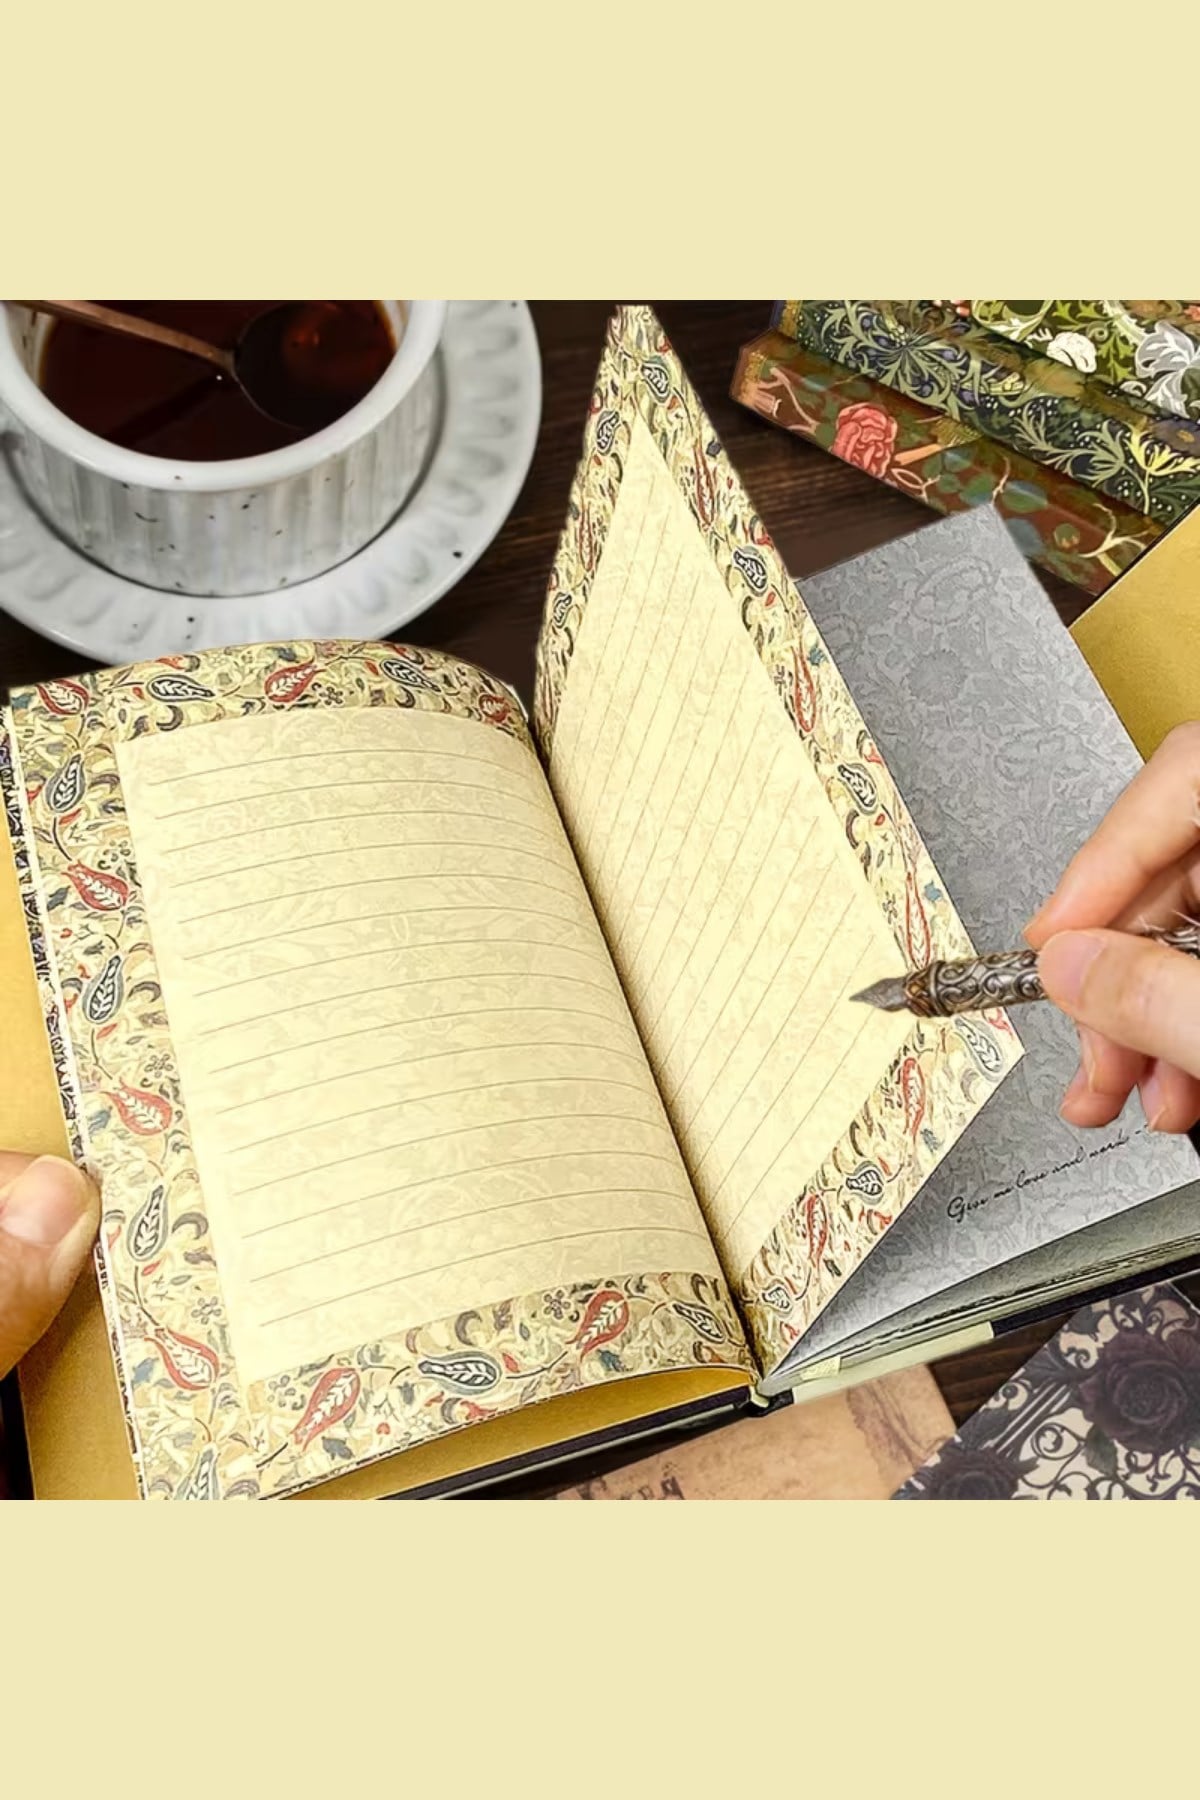 Give me love and work -